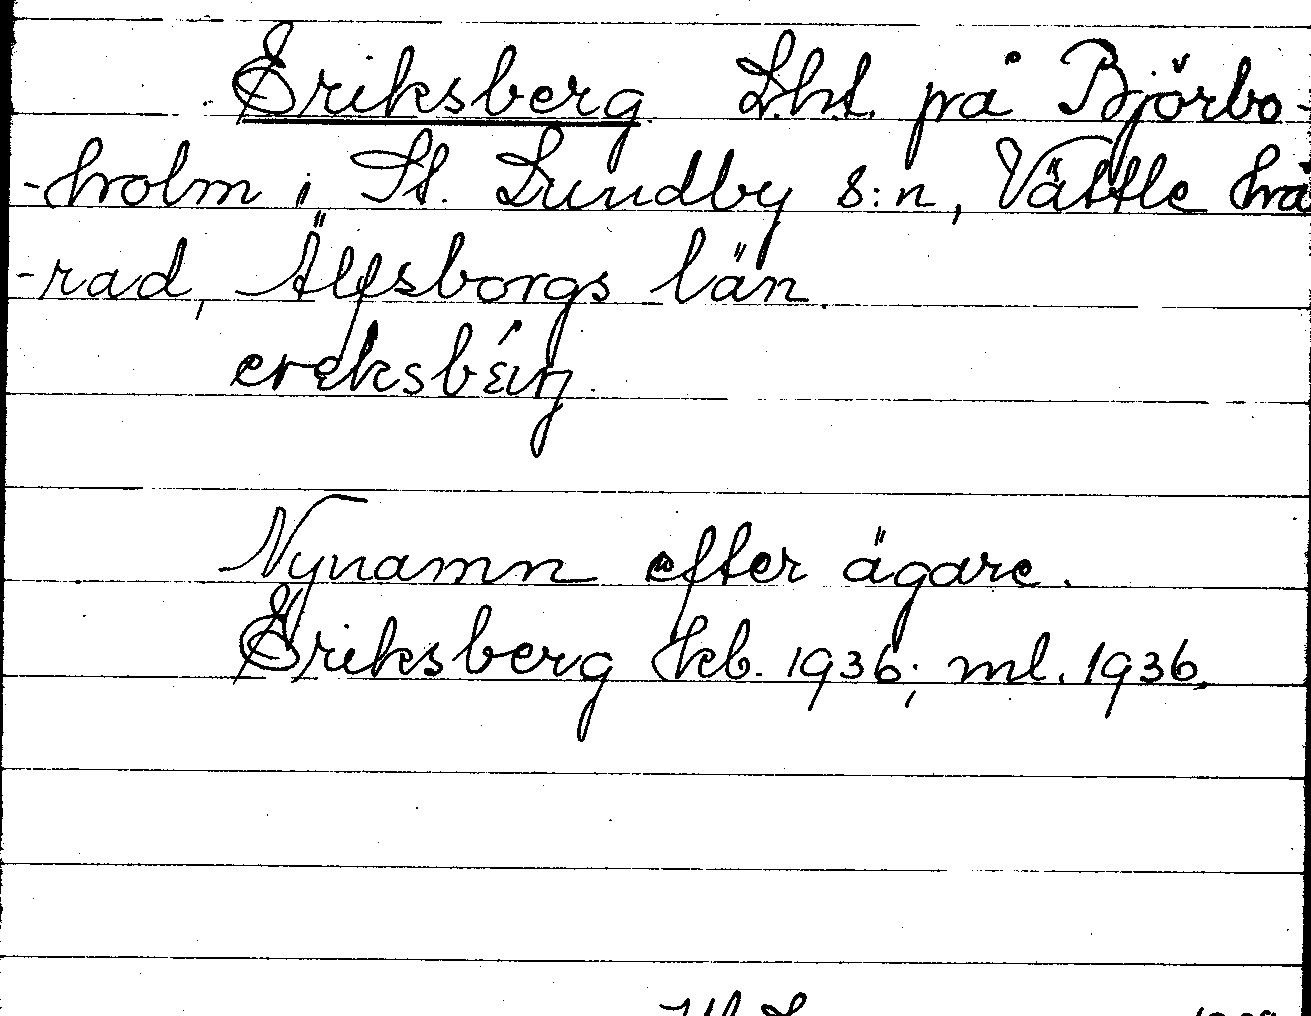 Eriksberg L.h.t. på Björbo-
-holm i St. Lundby s:n, Vättle hä
-rad, Älfsborgs län.
Nynamn efter ägare.
Eriksberg kb. 1936; ml. 1936.